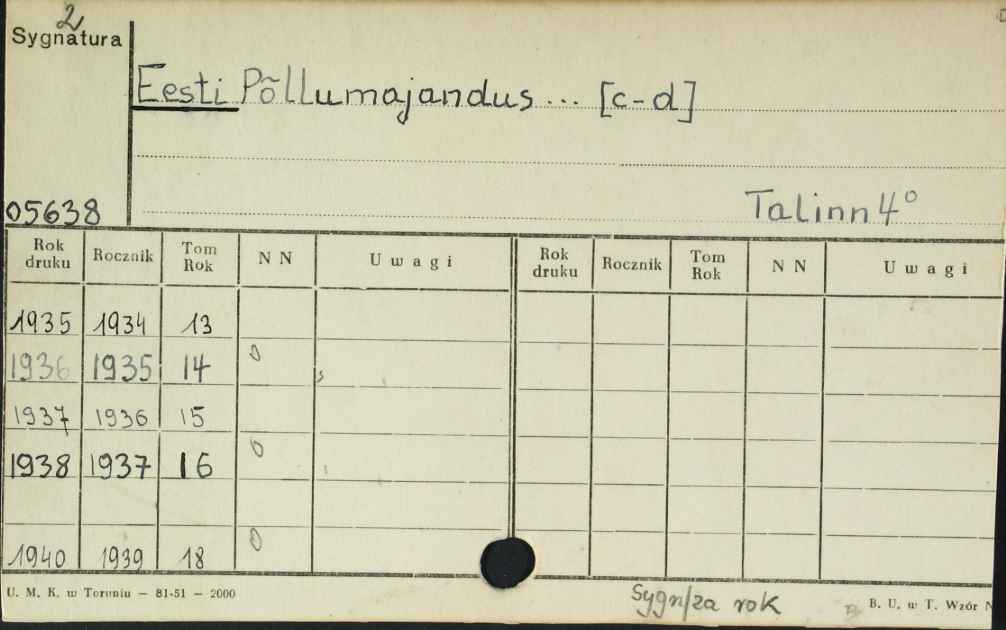 2
Sygnatura
Eesti Põllumajandus ... [c-d]
05638
Talinn 4°
Rok druku Rocznik Tom Rok N N Uwagi Rok druku Rocznik Tom Rok N N Uwagi
1935 1934 13
1936 1935 14 0
1937 1936 15
1938 1937 16 0
1940 1939 18 0
U. M. K. w Toruniu — 81-51 — 2000
Sygn/za rok
B. U. w T. Wzór N